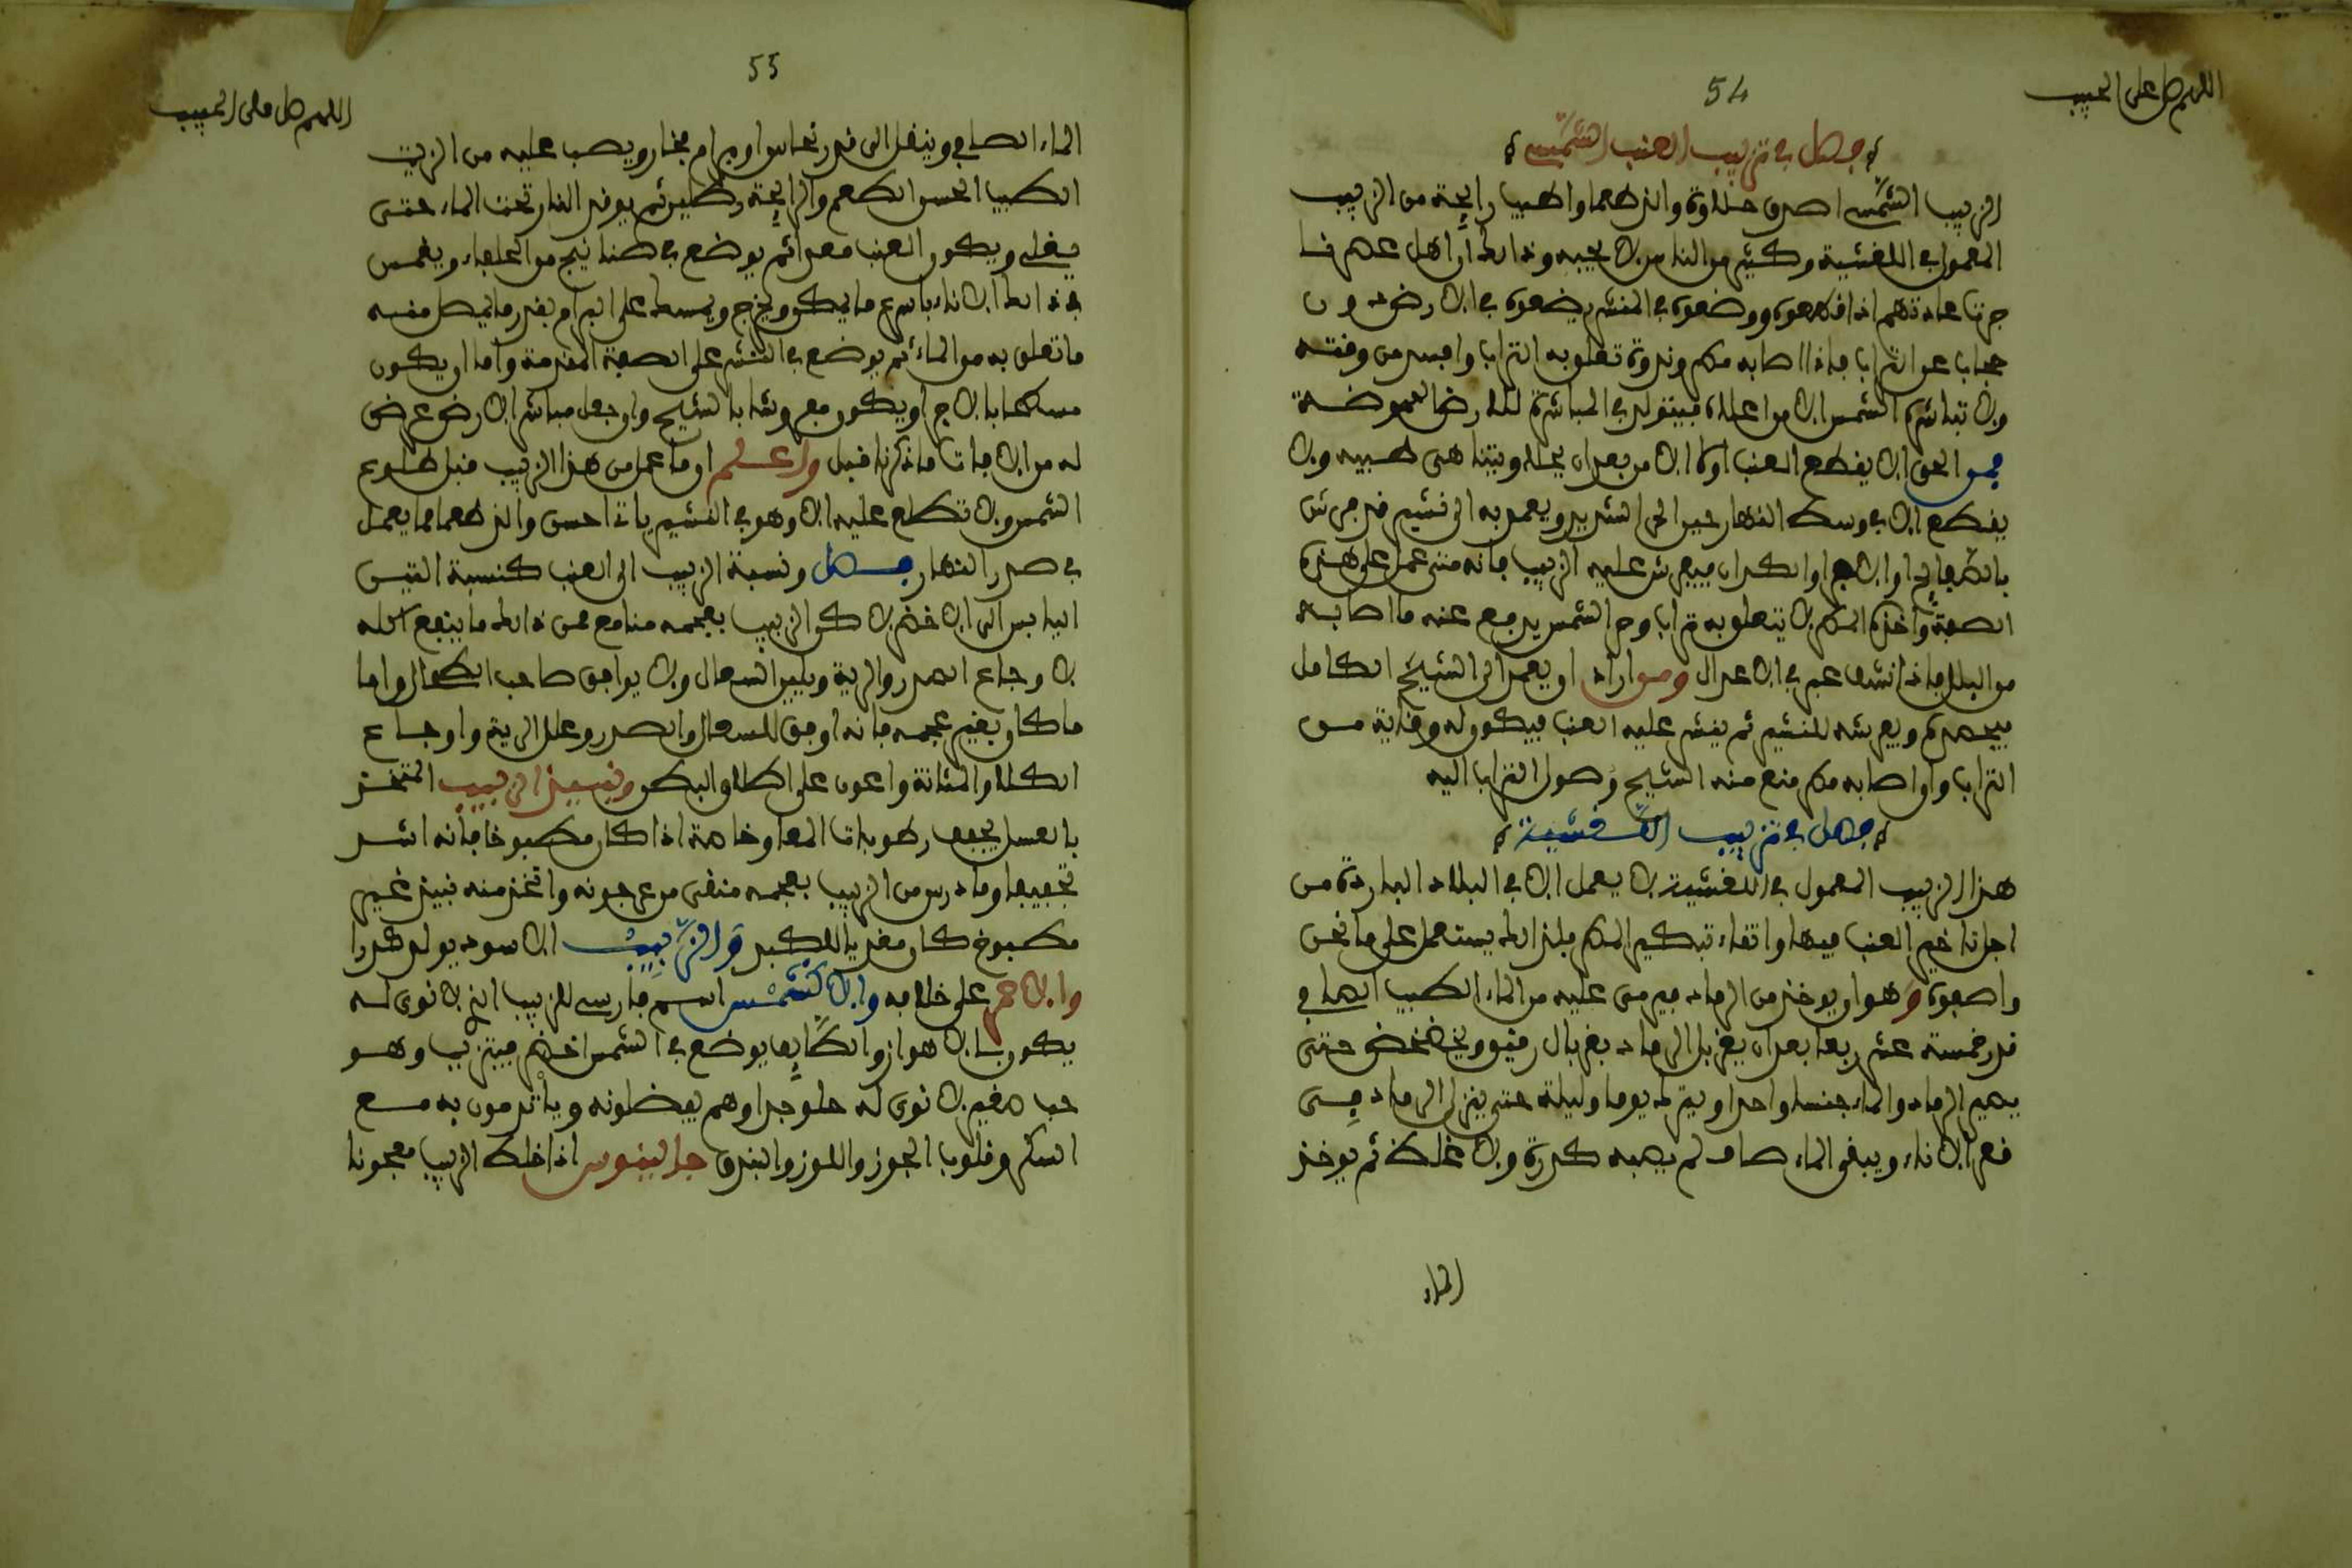 اللهم صل على الحبيب
54
فصل في تزبيب العنب الشمسي
الزبيب الشمسي اصدق حلاوة والذ طعما واطيب رايحة من الزبيب
المعمول في اللغشية وكثير من الناس لا يحبه وذالك ان اهل عصرنا
جرت عادتهم اذا قطعوه ووضعوه في المنشر يضعوه في الارض دون
حجاب عن التراب فاذا اصابه مطر وندوة تعلق به التراب وافسد من وقته
ولا تباشره الشمس الا من اعلاه فيتولد في المباشرة للارض العموضة
فمن الحق الا يقطع العنب اولا الا من بعد ان يحلا ويتناهى طيبه ولا
يقطع الا في وسط النهار حين الحر الشديد ويعمد به الى نشير قد فرش
بالطرفاء او الاحجار او الكدان فيفرش عليه الزبيب فانه متى عمل على هذه
الصفة واخذه المطر لا يتعلق به تراب وحر الشمس يدفع عنه ما اصابه
من البلل فاذا نشف عبر في الاعدال ومن اراد ان يعمد الى الشيح الكامل
فيحصده ويفرشه للنشير ثم ينشر عليه العنب فيكون له وقاية من
التراب وان اصابه مطر منع منه الشيح وصول التراب اليه
فصل في تزبيب اللغشية
هذا الزبيب المعمول في اللغشية لا يعمل الا في البلاد الباردة من
اجل تاخير العنب فيها واتقاء تبكير المطر فلذالك يستعمل على ما نحن
واصفوه وهو ان يوخذ من الرماد فيرمى عليه من الماء الطيب الصافي
قدر خمسة عشر ربعا بعد ان يغربل الرماد بغربال رقيق ويخضخض حتى
يصير الرماد والماء جنسا واحدا ويترك يوما وليلة حتى ينزل الرماد في
قعر الاناء ويبقى الماء صاف لم يصبه كدرة ولا غلظ ثم يوخذ
الماء
اللهم صل على الحبيب
55
الماء الصافي وينقل الى قدر نحاس او برام فخار ويصب عليه من الزيت
الطيب الحسن الطعم والرايحة رطلين ثم يوقد النار تحت الماء حتى
يغلي ويكون العنب معدا ثم يوضع في صنانيج من الحلفاء ويغمس
في ذالك الاناء باسرع ما يكون ويخرج ويمسك على البرام بقدر ما يصل منه
ما تعلق به من الماء ثم يوضع في النشر على الصفة المقدمة واما ان يكون
مسطحا بالاجر او يكون مفروشا بالشيح وان جعل مباشر الارض عرض
له من الافات ما ذكرنا قبل واعلم ان ما عمل من هذا الزبيب قبل طلوع
الشمس ولا تطلع عليه الا وهو في النشير ياتي احسن والذ طعما مما يعمل
في صدر النهار فصل ونسبة الزبيب الى العنب كنسبة التين
اليابس الى الاخضر لاكن الزبيب بعجمه منافع فمن ذالك ما ينفع اكله
لاوجاع الصدر والرية ويلين السعال ولا يوافق صاحب الطحال واما
ما كان بغير عجمه فانه اوفق للسعال والصدر وعلل الرية واوجاع
الكلا والمثانة واعون على اطلاق البطن ونبيذ الزبيب المتخذ
بالعسل يجفف رطوبات المعا وخاصة اذا كان مطبوخا فانه اشد
تجفيفا وما درس من الزبيب بعجمه منقى من عرجونه واتخذ منه نبيذ غير
مطبوخ كان مغذيا للكبد والزبيب الاسود يولد كدرا
والاحمر على خلافه والاكشمش اسم فارسي للزبيب الذي لا نوى له
يكون بالاهواز والطايف يوضع في الشمس اخضر فيتزبب وهو
حب صغير لا نوى له حلو جدا وهم يفضلونه وياتدمون به مع
السكر وقلوب الجوز واللوز والبندق جالينوس اذا خلط الزبيب معجونا